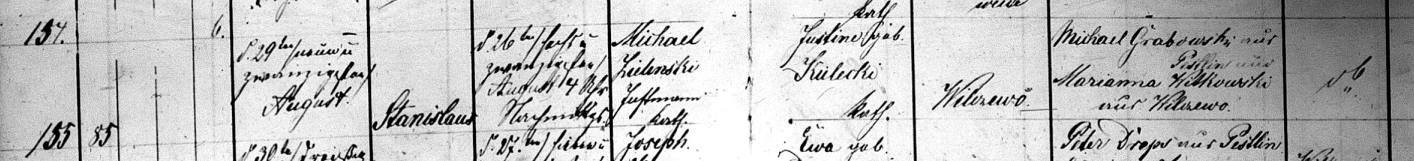 kath.
154. 6.
d. 29ten/neun u
zwanzigsten/
August.
Stanislaus
d. 26ten/sechs u
zwanzigsten/
August 4 Uhr
Nachmittgs.
Michael
Zielinski
Instmann
kath.
Justine geb.
Kulecki
kath.
Wilczewo
Michael Grabowski aus
Pestlin und
Marianna Witkowski
aus Wilczewo.
ob
155 85
d. 30ten/dreißig
d. 27ten/sieben u
Joseph
Ewa geb.
Peter Drops aus Pestlin